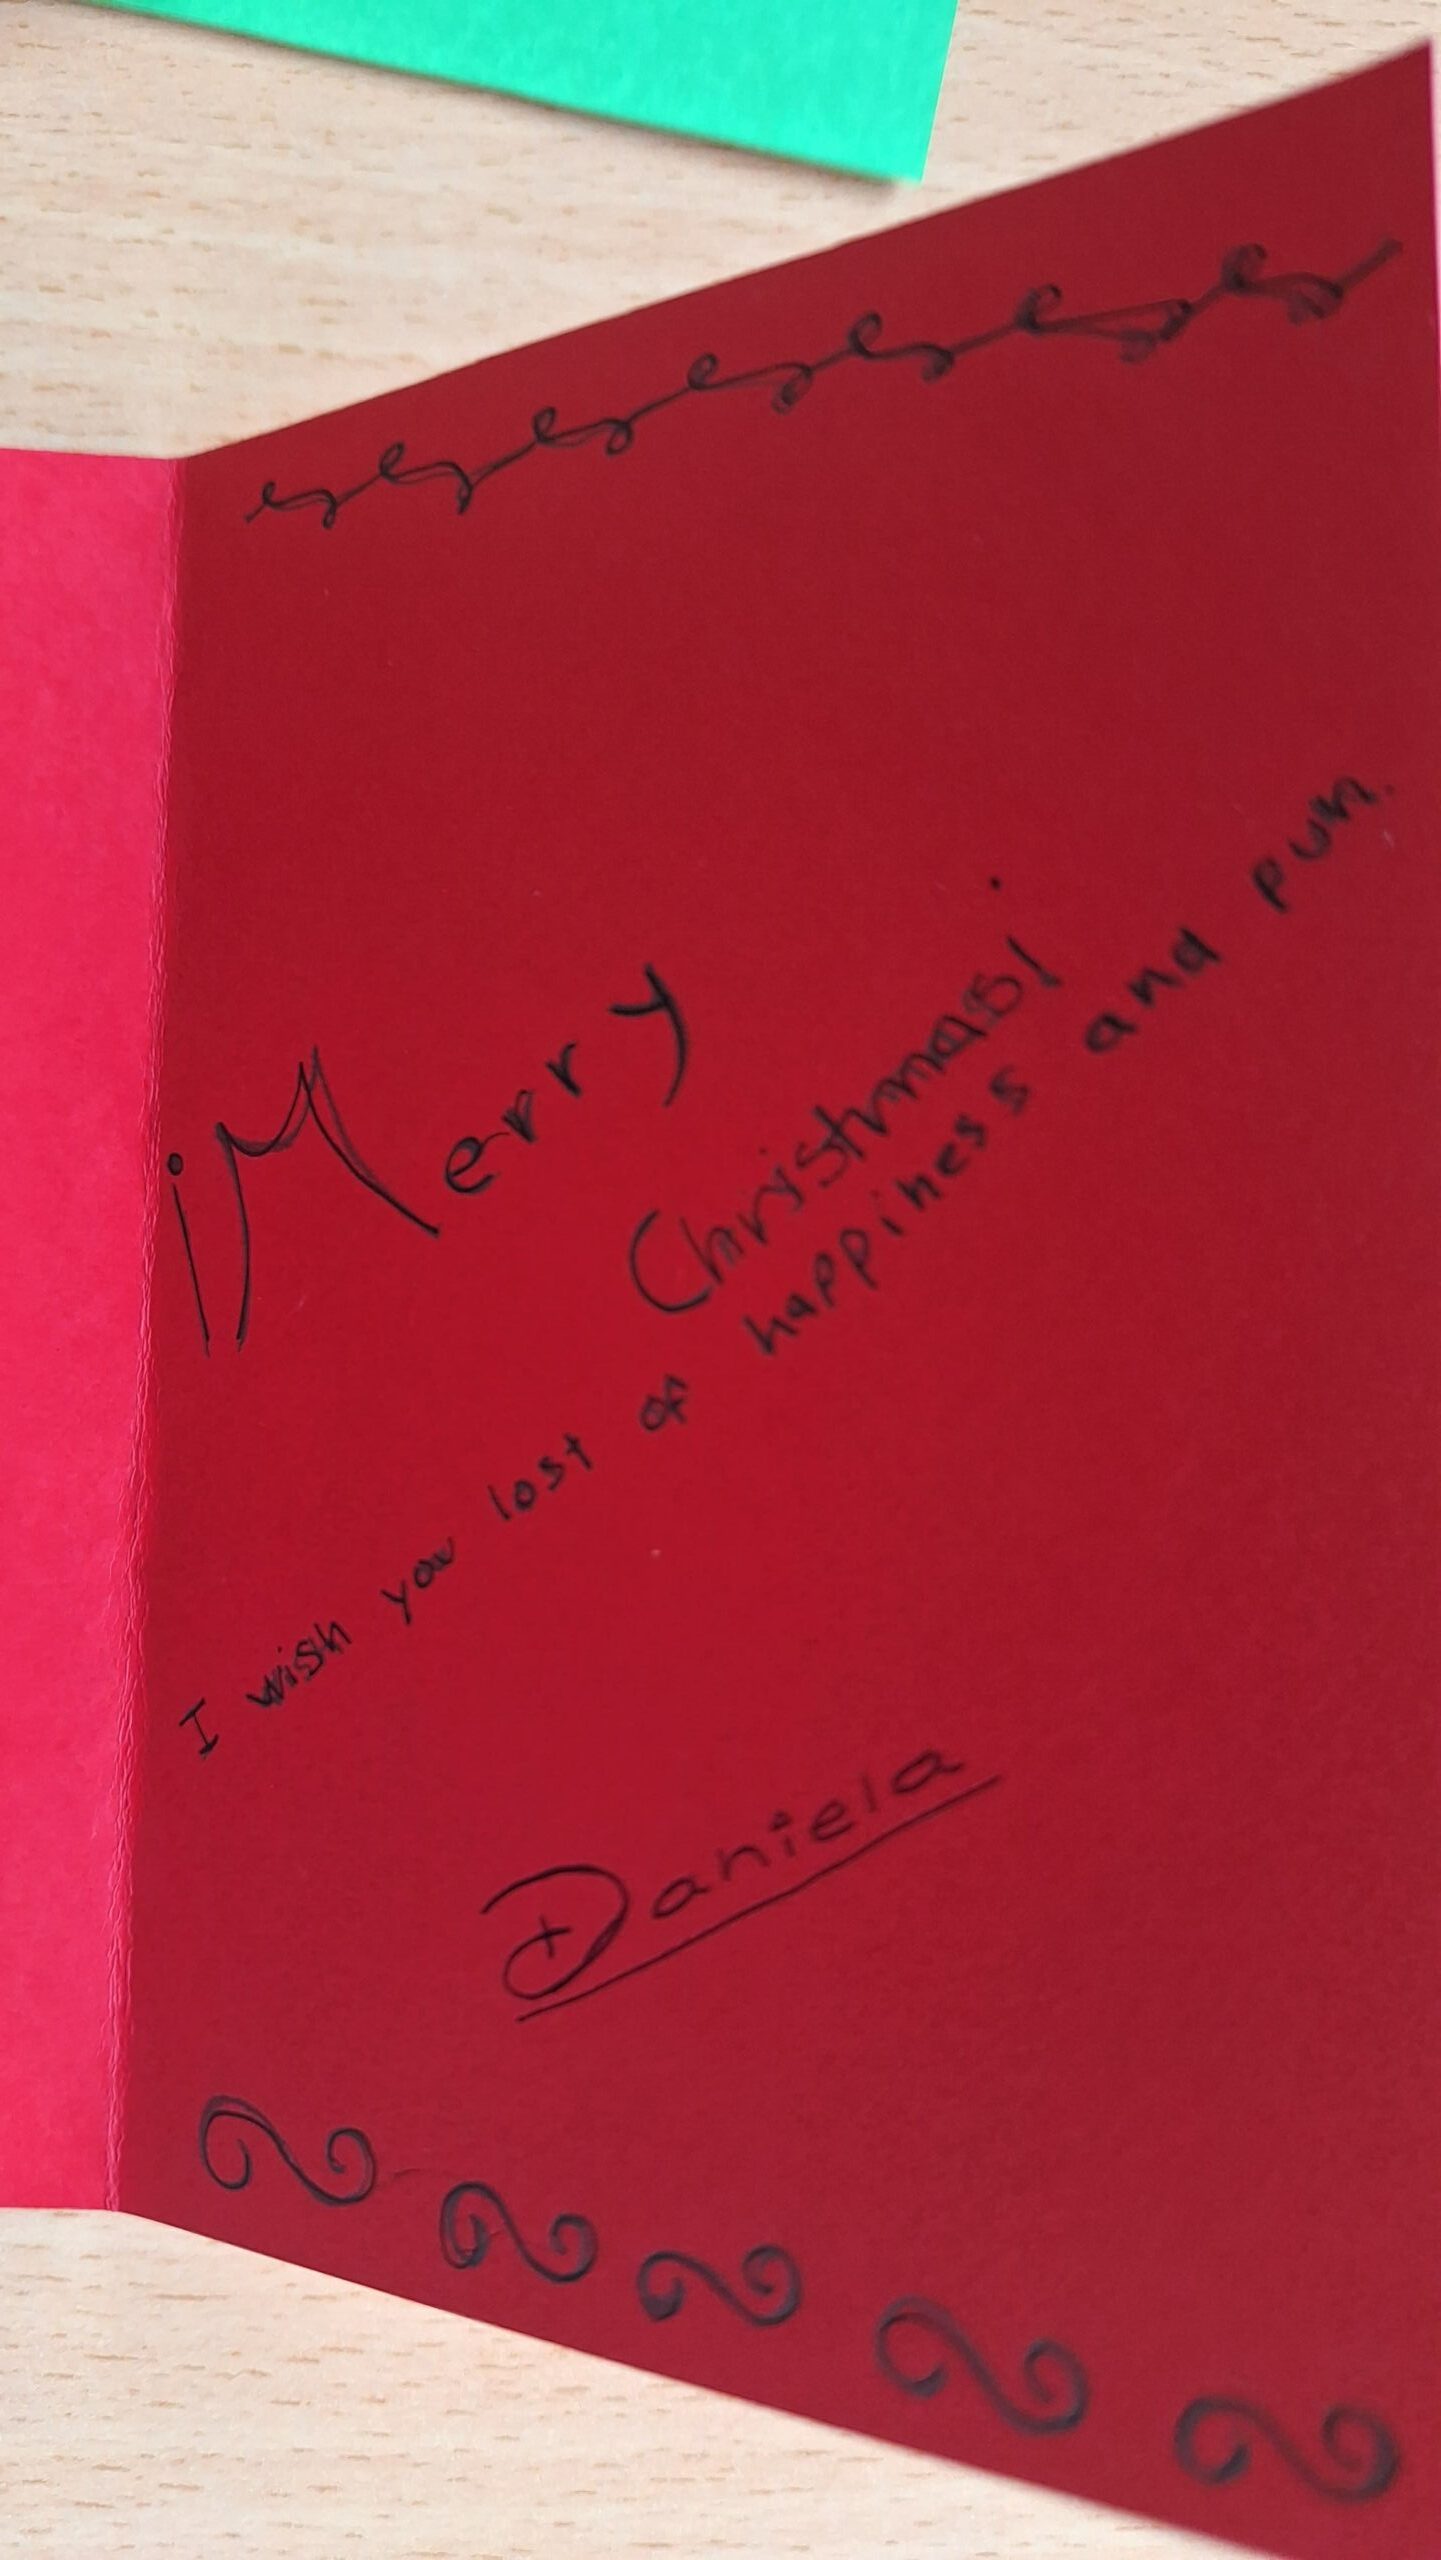 ¡Merry
Christmas!
I wish you lost of happiness and pun.
Daniela